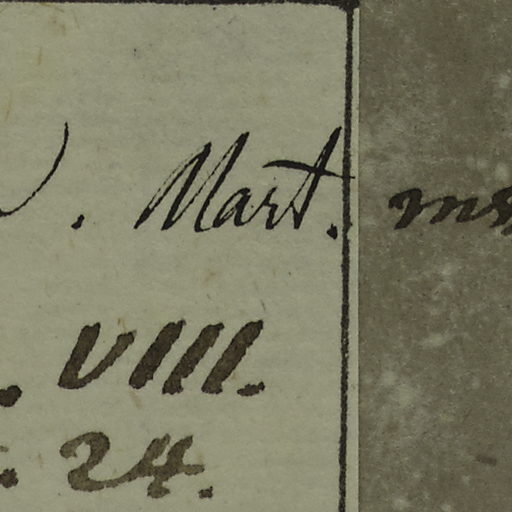 . Mart. ms
. VIII.
. 24.